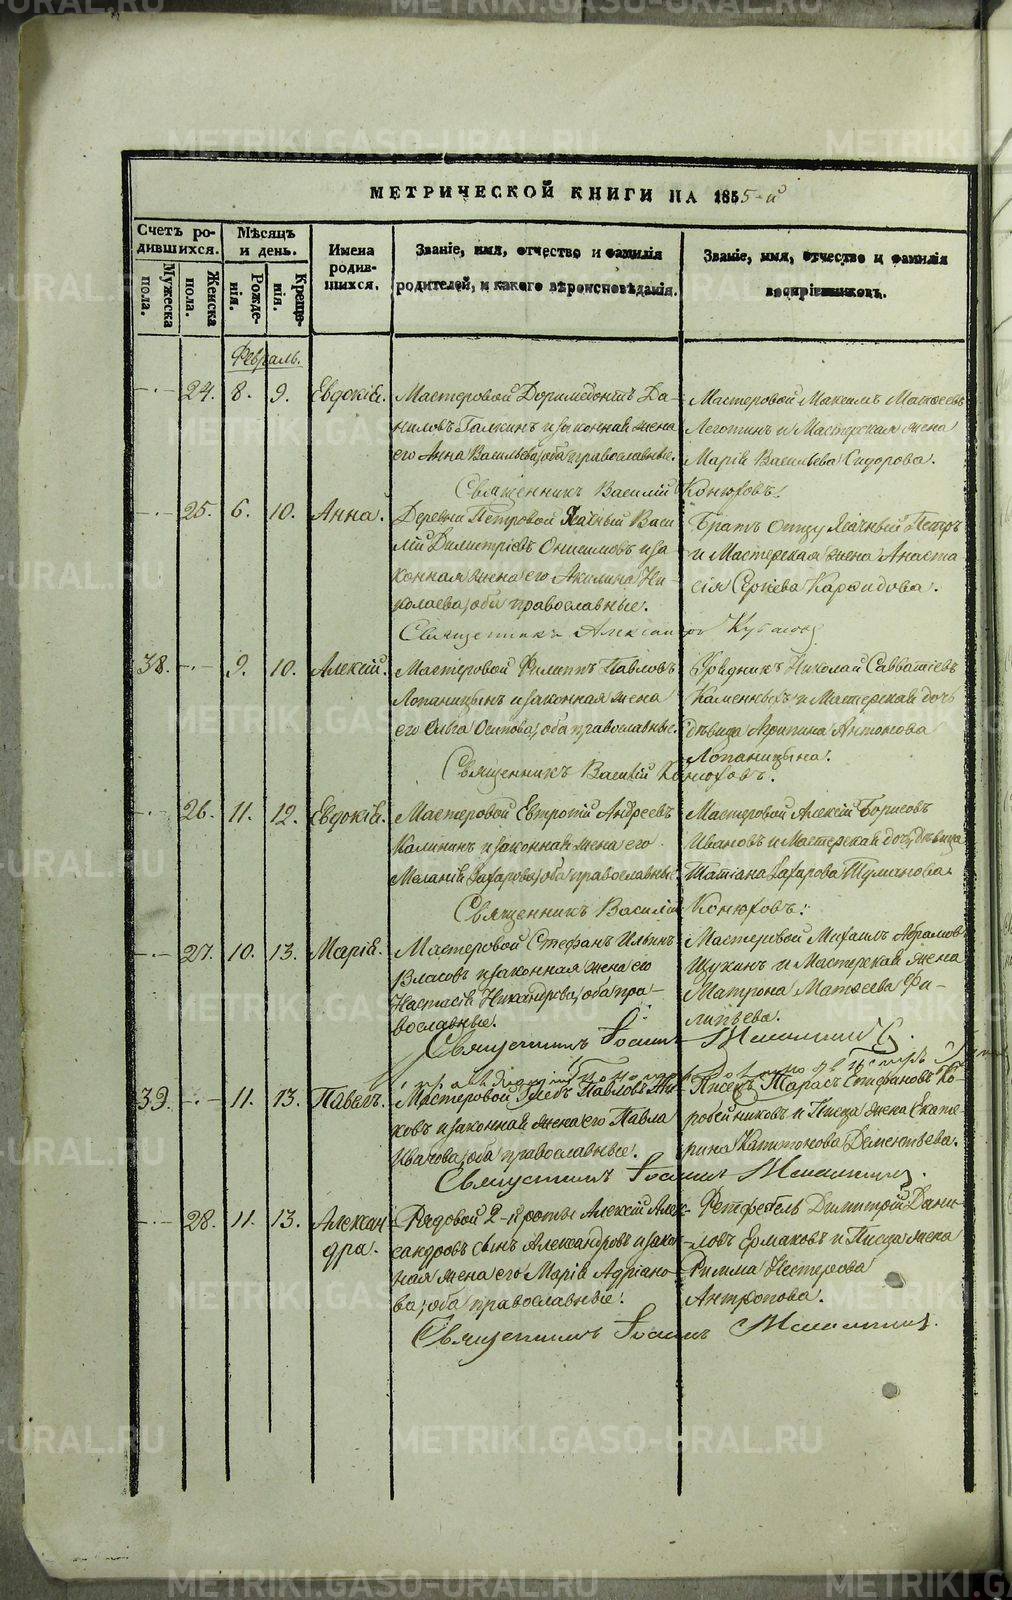 МЕТРИЧЕСКОЙ КНИГИ НА 1855-й
Счетъ ро-
дившихся.
Мужеска
пола.
Женска
пола.
Мѣсяцъ
и день.
Рожде-
нія.
Креще-
нія.
Имена
родив-
шихся.
Званіе, имя, отчество и фамилія
родителей, и какого вѣроисповѣданія.
Званіе, имя, отчество и фамилія
воспріемниковъ.
Февраль.
24. 8. 9. Евдокія.
Мастеровой Доримедонтъ Да-
ниловъ Галкинъ и законная жена
его Анна Васильева, оба православные.
Мастеровой Максимъ Моисеевъ
Леготинъ и Мастерская жена
Марія Васильева Сидорова.
Священникъ Василій Конюховъ.
25. 6. 10. Анна.
Деревни Петровой Ясачный Васи-
лій Димитріевъ Онисимовъ и за-
конная жена его Акилина Ни-
колаева, оба православные.
Братъ отцу Ясачный Петръ
и Мастерская жена Анаста-
сія Сергіева
Священникъ Александръ
38. 9. 10. Алексій.
Мастеровой Филиппъ Павловъ
Лопаницынъ и законная жена
его Ольга Осипова, оба православные.
Урядникъ Николай Савватіевъ
Каменныхъ и Мастерская дочь
дѣвица Агрипина Антонова
Лопаницына.
Священникъ Василій Конюховъ.
26. 11. 12. Евдокія.
Мастеровой Евтропій Андреевъ
Калининъ и законная жена его
Меланія Захарова, оба православные.
Мастеровой Алексій Борисовъ
Ивановъ и Мастерская дочь, дѣвица
Татіана Захарова Туманова.
Священникъ Василій Конюховъ.
27. 10. 13. Марія.
Мастеровой Стефанъ Ильинъ
Власовъ и законная жена его
Настасія Никандрова, оба пра-
вославные.
Мастеровой Михаилъ Абрамовъ
Щукинъ и Мастерская жена
Матрона Матвеева Фи-
липьева.
Священникъ Іоаннъ
39. 11. 13. Павелъ.
Мастеровой Глебъ Павловъ
ковъ и законная жена его Павла
Иванова, оба православные.
Писецъ Тарасъ Стефановъ Ко-
робейниковъ и Писца жена Екате-
рина Капитонова Дементьева.
Священникъ Іоаннъ
28. 11. 13. Алексан-
дра.
Рядовой 2-й роты Алексій Алек-
сандровъ сынъ Александровъ и закон-
ная жена его Марія Адріано-
ва, оба православные.
Фелдфебель Димитрій Дани-
ловъ Ермаковъ и Писца жена
Римма Нестерова
Антропова.
Священникъ Іоаннъ
METRIKI.GASO-URAL.RU